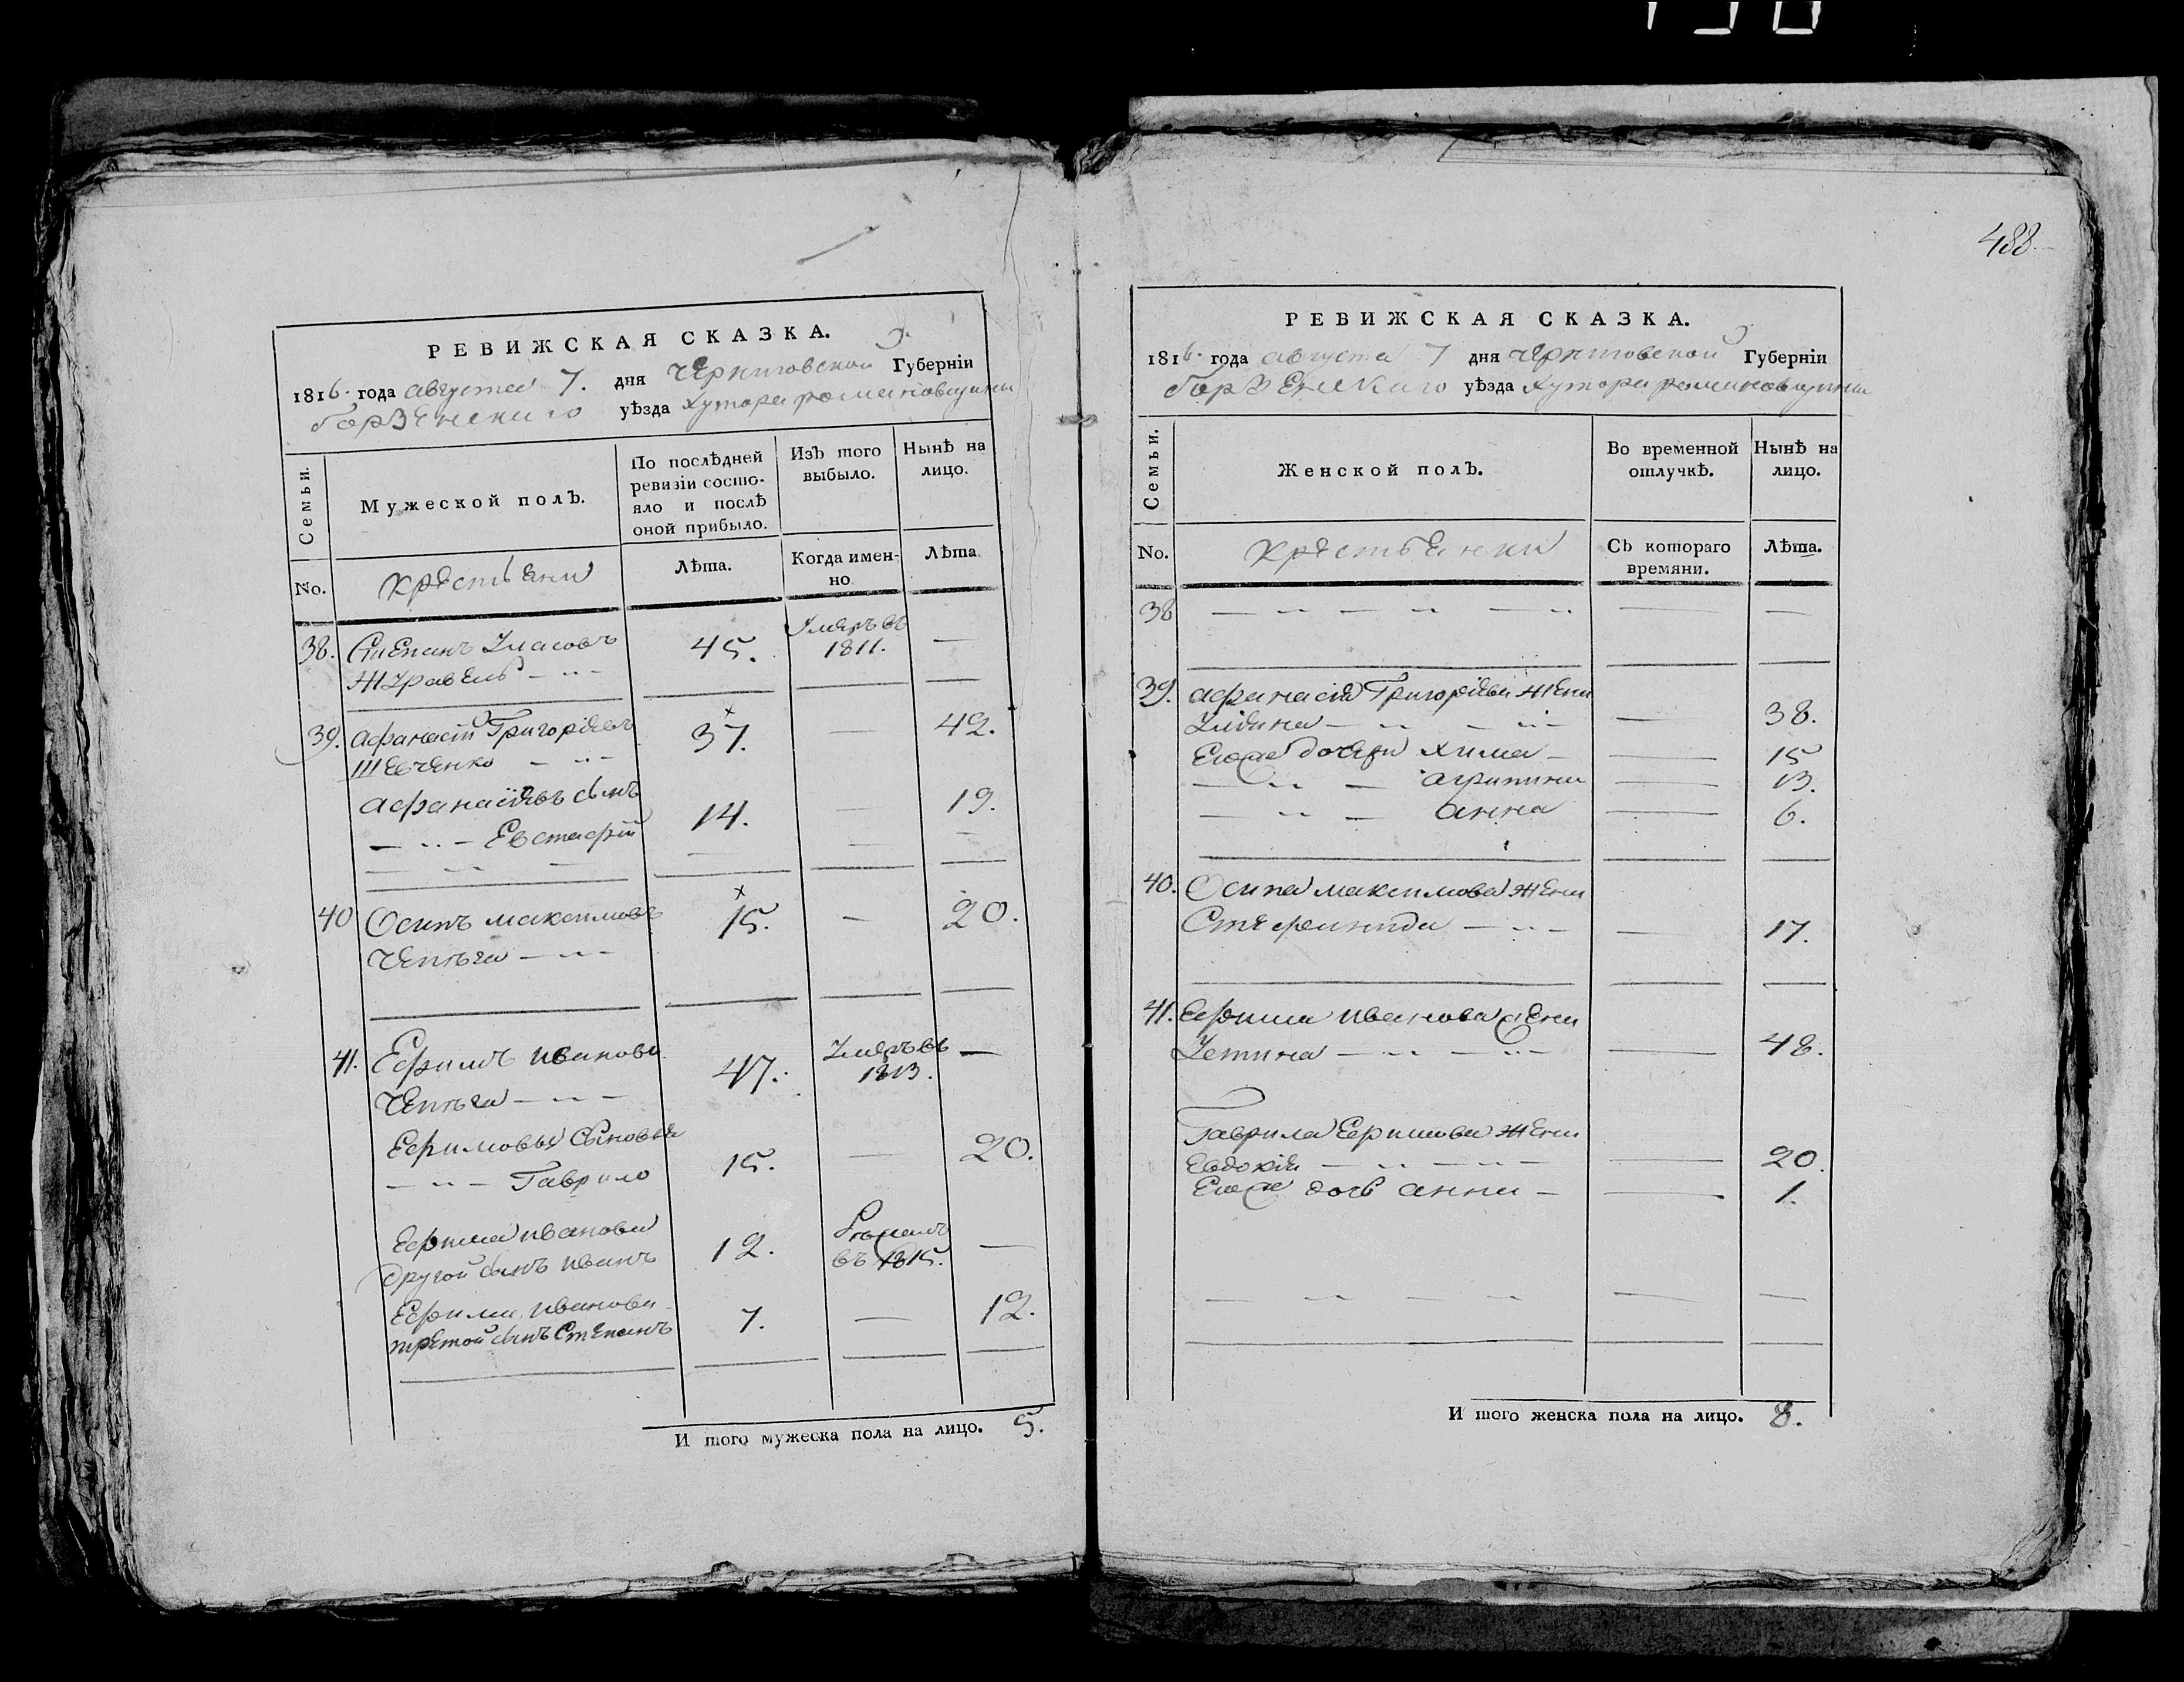 488
РЕВИЖСКАЯ СКАЗКА.
1816. года августа 7. дня Черниговской Губерніи
борзенскаго уѣзда хутора романовщини
Семьи.
Мужеской полЪ.
По послѣдней ревизіи состояло и послѣ оной прибыло.
ИзЪ того выбыло.
НынѢ на лицо.
No.
крестьяни
Лѣта.
Когда именно
Лѣта
38. Степанъ Власовъ 45. Умеръ въ 1811. —
Журавель
39. Афанасій Григоріевъ 37. — 42.
Шевченко
Афанасіевъ сынъ 14. — 19.
Евстафій
40 Осипъ максимовъ 15. — 20.
Чепъга
41. Ефимъ иванова 47. Умеръ въ 1813. —
Чепъга
Ефимовы сыновья 15. — 20.
Гаврило
Ефима иванова 12.
другой сынъ иванъ въ 1815. —
Ефима иванова 7. — 12.
третой сынъ Степанъ
И того мужеска пола на лицо. 5.
РЕВИЖСКАЯ СКАЗКА.
1816. года августа 7 дня Черниговской Губерніи
борзенскаго уѣзда хутора романовщини
Семьи.
Женской полЪ.
Во временной отлучкѢ.
НынѢ на лицо.
No.
крестьянки
СЪ котораго времяни.
Лѣта.
38
39. афанасія Григоріева жена
Улияна — 38.
Егоже дочери хима — 15
агрипина — 13.
анна — 6.
40. Осипа максимова жена
Стефанида — 17.
41. Ефима иванова жена
Устина — 48.
Гаврила Ефимова жена
Евдокія — 20.
Егоже дочь анна — 1.
И того женска пола на лицо. 8.